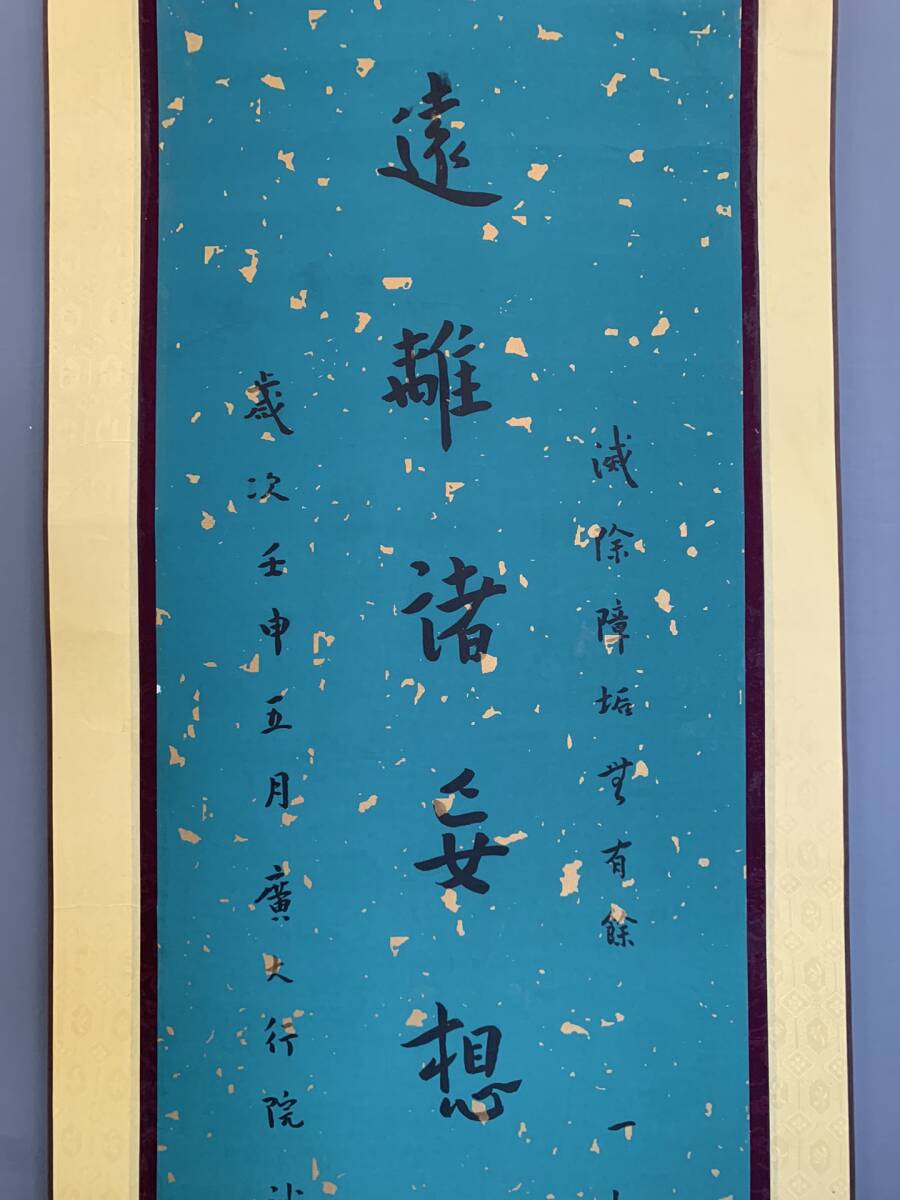 滅除障垢無有餘 一
遠離諸妄想
歲次壬申五月廣大行院